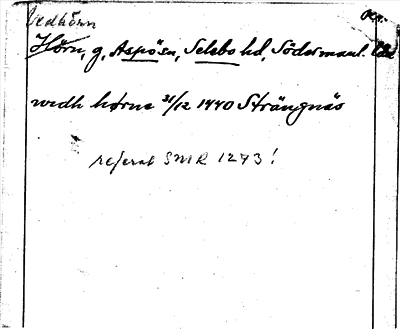 Vedhörn
Hörn, g, Aspö sn, Selebo hd, Södermanl. län
wedh hørne 31/12 1440 Strängnäs
referat SMR 1293!